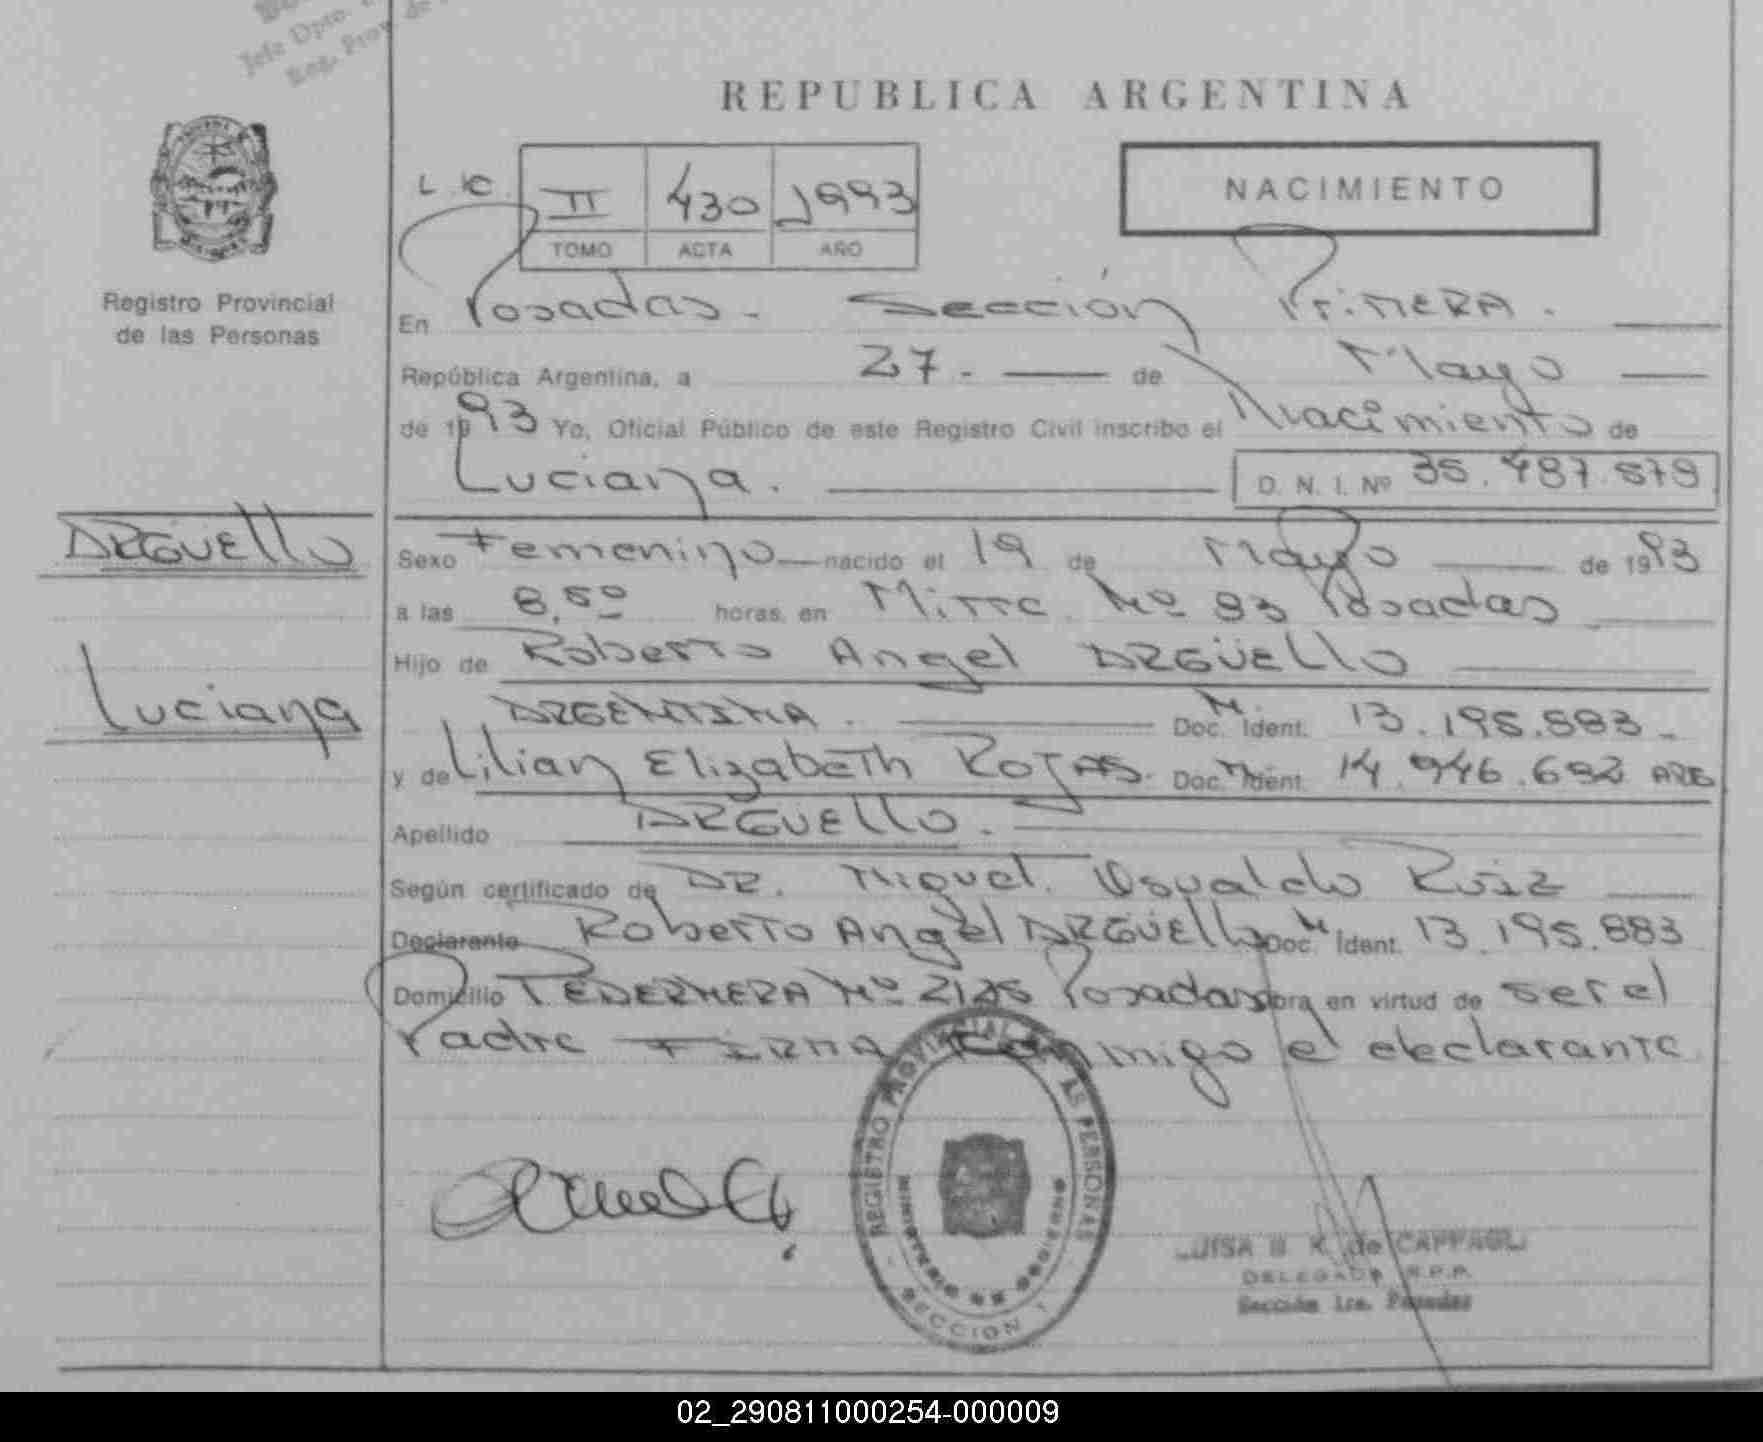 Jefe Dpto.
Reg. Prov. de
REPUBLICA ARGENTINA
NACIMIENTO
II 430 1993
TOMO ACTA AÑO
Registro Provincial
de las Personas
En Posadas. Sección Primera.
República Argentina, a 27. de Mayo
de 1993 Yo, Oficial Público de este Registro Civil inscribo el Nacimiento de
Luciana. D. N. I. Nº
ARGÜEllo
Sexo Femenino nacido el 19 de Mayo de 1993
a las 8,50 horas, en Mitre Nº 93 Posadas
Hijo de Roberto Angel ARGÜEllo
Luciana
ARGENTINA. Doc. Ident.
y de Lilian Elizabeth ROJAS. Doc. Ident. 14.946.692 ARG
Apellido ARGÜEllo.
Según certificado de DR. Miguel Osvaldo Ruiz
Declarante Roberto Angel ARGÜEllo Doc. Ident. 13.195.883
Domicilio PEDERNERA Nº Posadas obra en virtud de ser el
Padre FIRMA conmigo el declarante
REGISTRO PROVINCIAL DE LAS PERSONAS
MINISTERIO DE GOBIERNO
SECCION 1
LUISA K. de CAPPAGLI
DELEGADA R.P.P.
Sección 1ra. Posadas
02_290811000254-000009